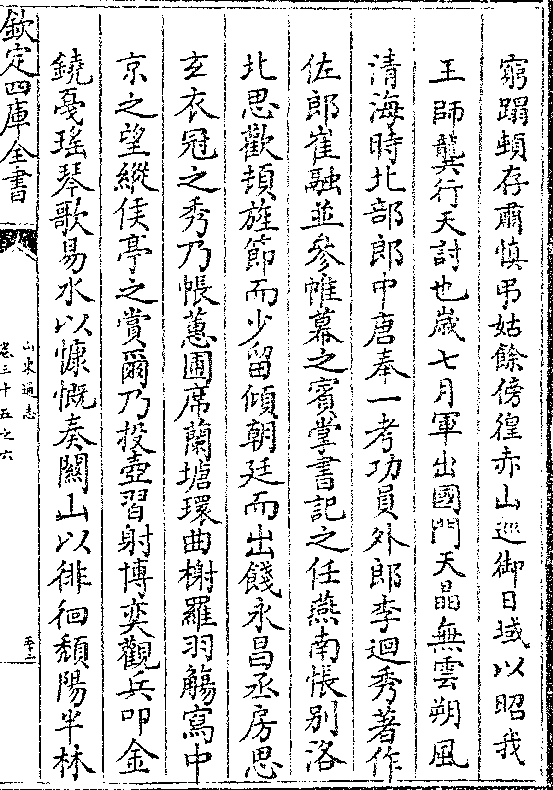 窮蹋頓存肅慎弔姑餘傍徨赤山巡御日域以昭我
王師龔行天討也歲七月軍出國門天晶無雲朔風
清海時北部郎中唐奉一考功員外郎李迥秀著作
佐郎崔融並參帷幕之賓掌書記之任燕南悵别洛
北思歡頓旌節而少留傾朝廷而出餞永昌丞房思
玄衣冠之秀乃帳蕙圃席蘭塘環曲榭羅羽觴寫中
京之望縱侯亭之賞爾乃投壺習射博奕觀兵叩金
鐃戞瑤琴歌易水以慷慨奏關山以徘徊頽陽半林
欽定四庫全書
山東通志
卷三十五之六